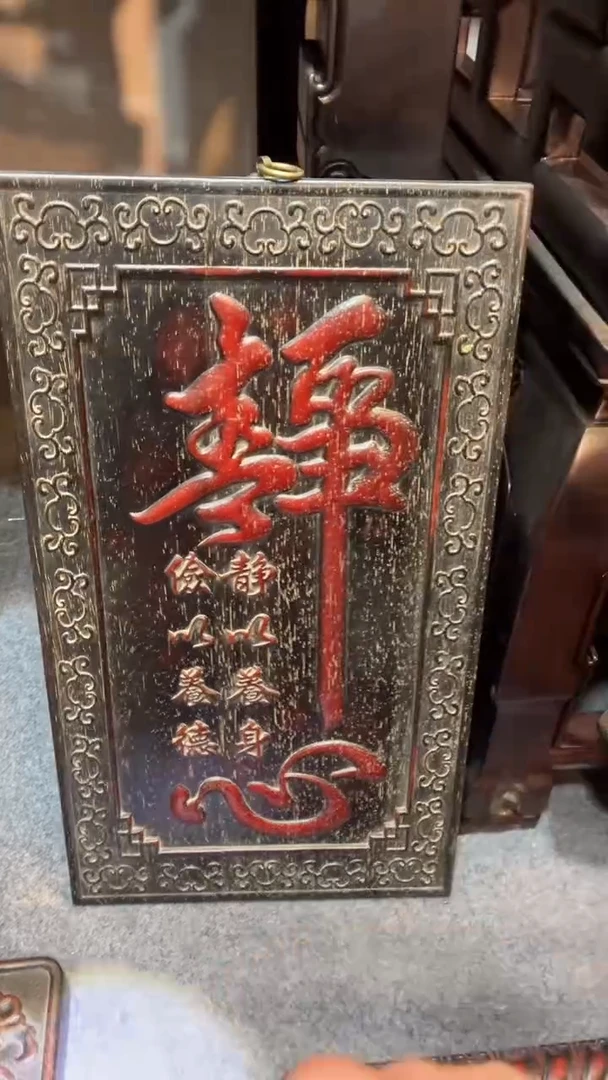 静心
静以養身
儉以養德